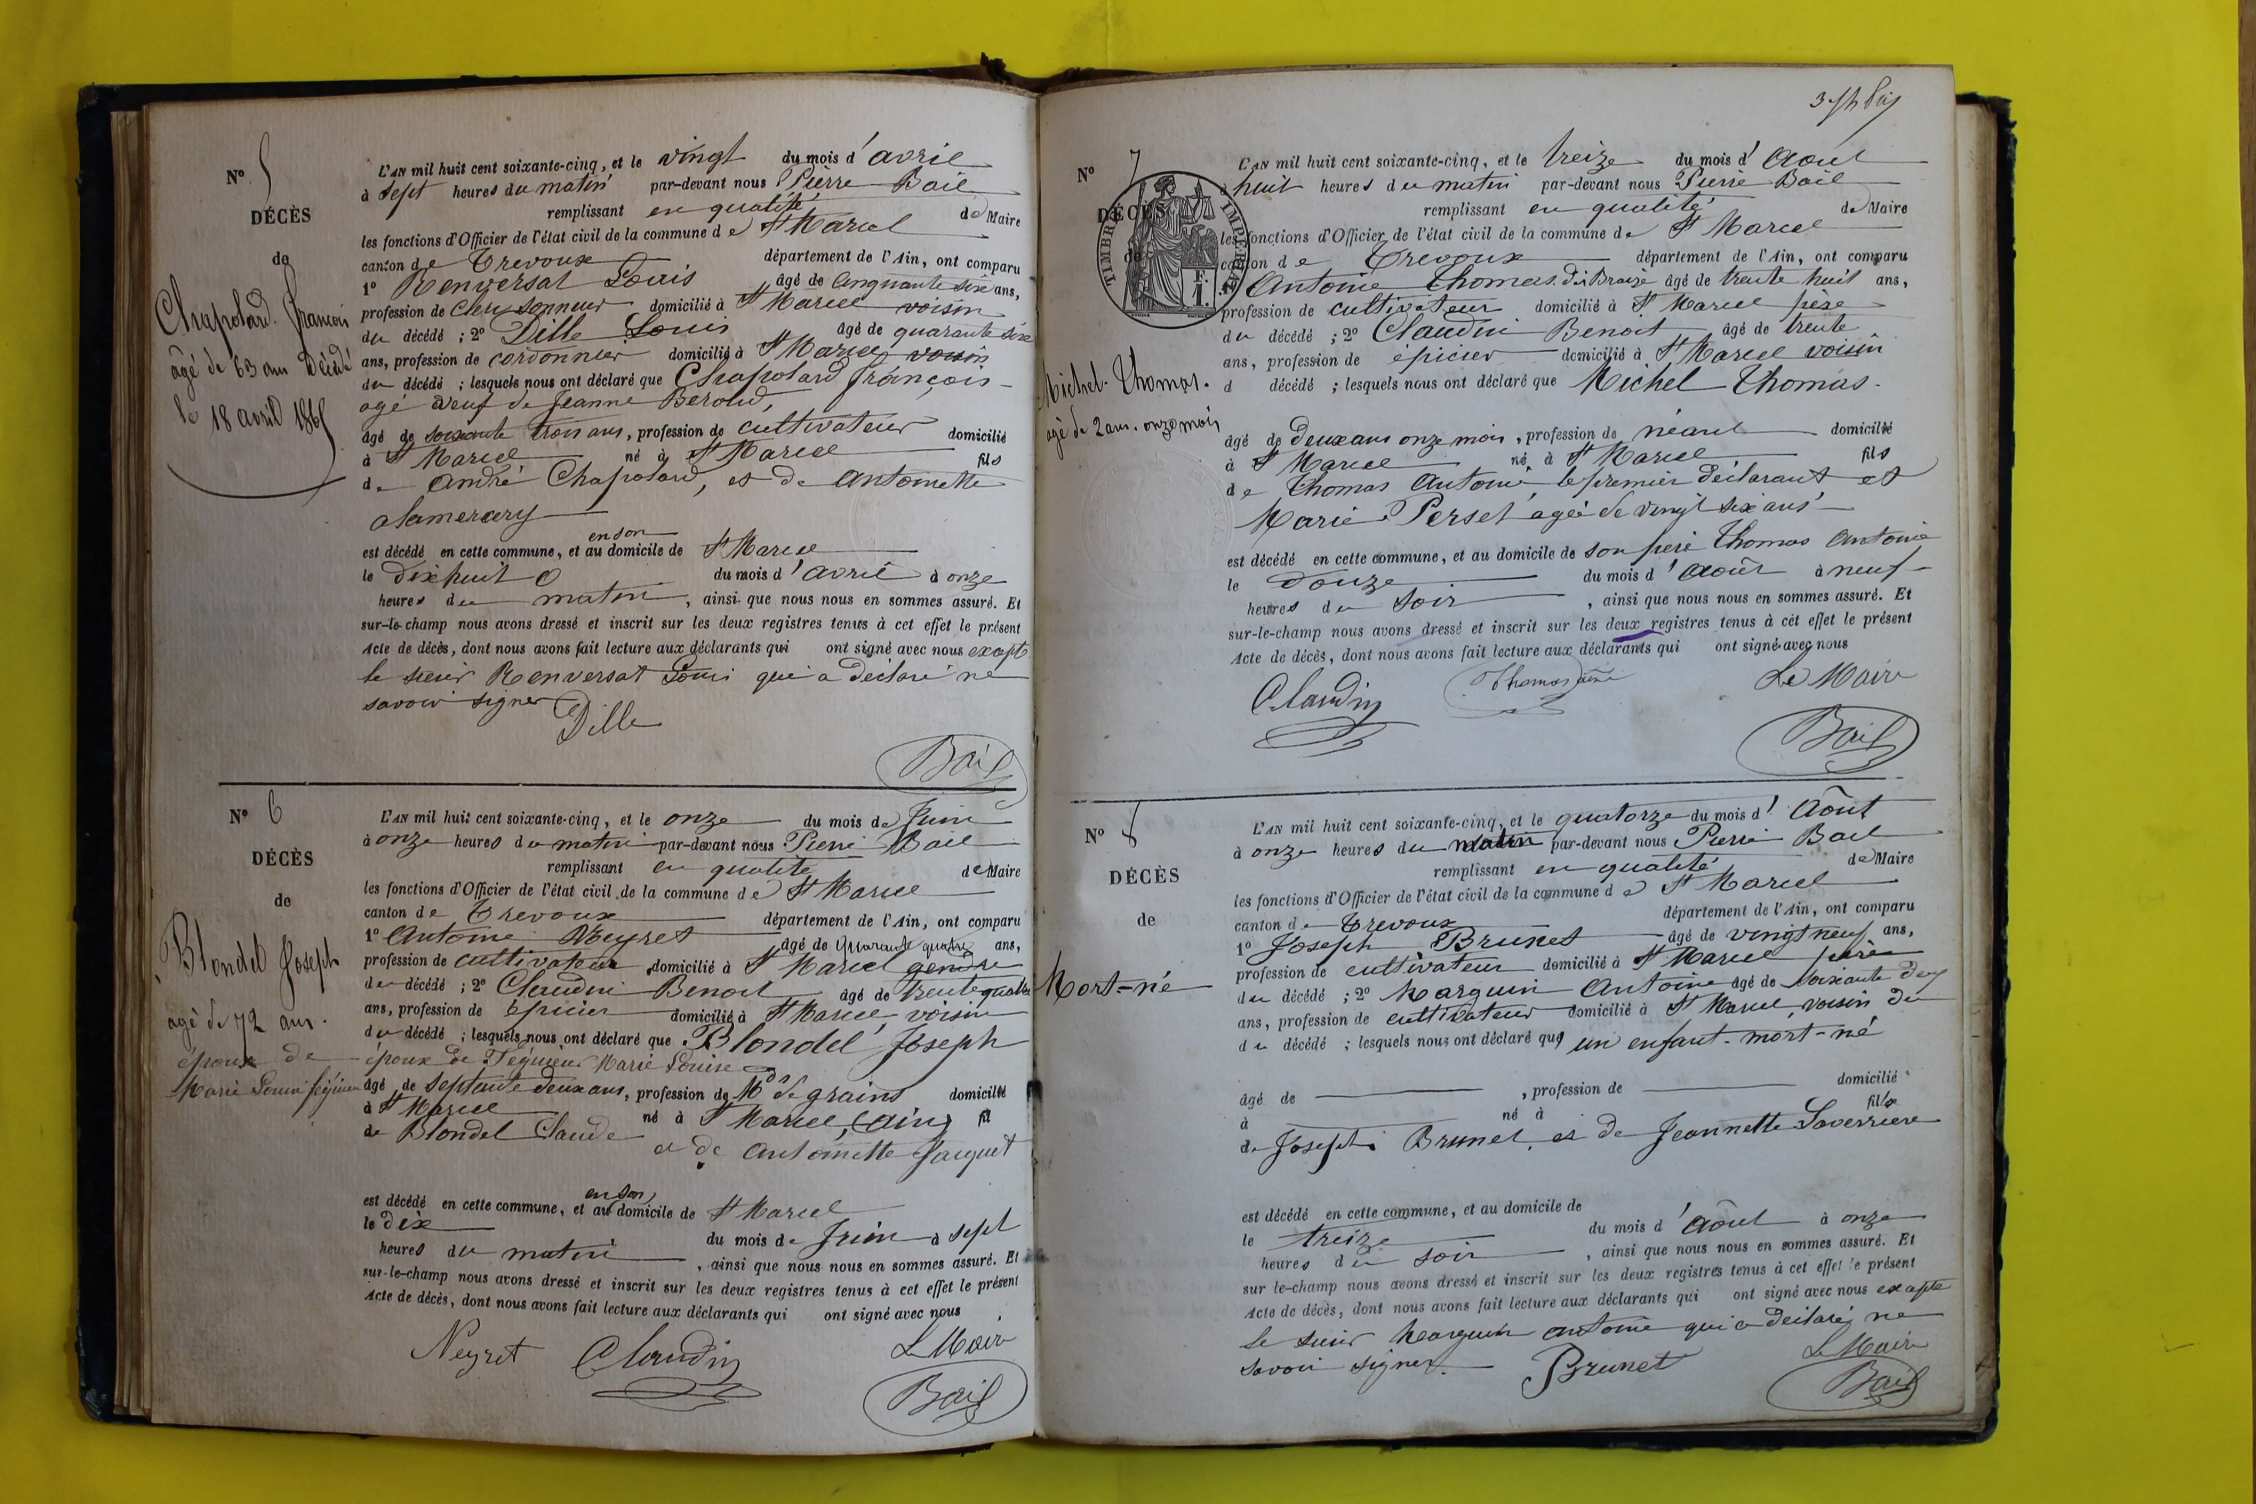 N° 5
DÉCÈS
de
Chapolard François
âgé de 63 ans Décédé
le 18 avril 1865
L'AN mil huit cent soixante-cinq, et le vingt du mois d'avril
à sept heures du matin par-devant nous Pierre Bail
remplissant en qualité de Maire
les fonctions d'Officier de l'état civil de la commune de St Marcel
canton de Trevoux département de l'Ain, ont comparu
1° Renversat Louis âgé de cinquante six ans,
profession de clerc sonneur domicilié à St Marcel voisin
du décédé ; 2° Dille Louis âgé de quarante six
ans, profession de cordonnier domicilié à St Marcel voisin
du décédé ; lesquels nous ont déclaré que Chapolard François
agé veuf de Jeanne Beroud,
âgé de soixante trois ans, profession de cultivateur domicilié
à St Marcel né à St Marcel fils
de André Chapolard, et de Antoinette
Alamercery
en son
est décédé en cette commune, et au domicile de St Marcel
le dix huit du mois d'avril à onze
heures du matin, ainsi que nous nous en sommes assuré. Et
sur-le-champ nous avons dressé et inscrit sur les deux registres tenus à cet effet le présent
Acte de décès, dont nous avons fait lecture aux déclarants qui ont signé avec nous excepté
le sieur Renversat Louis qui a déclaré ne
savoir signer
Dille
Bail
N° 6
DÉCÈS
de
Blondel Joseph
âgé de 72 ans.
époux de
Marie Louise
L'AN mil huit cent soixante-cinq, et le onze du mois de Juin
à onze heures du matin par-devant nous Pierre Bail
remplissant en qualité de Maire
les fonctions d'Officier de l'état civil de la commune de St Marcel
canton de Trevoux département de l'Ain, ont comparu
1° Antoine Neyret âgé de quarante quatre ans,
profession de cultivateur domicilié à St Marcel gendre
du décédé ; 2° Claudin Benoit âgé de trente quatre
ans, profession de Épicier domicilié à St Marcel, voisin
du décédé ; lesquels nous ont déclaré que Blondel Joseph
époux de Marie Louise
âgé de septante deux ans, profession de Md de grains domicilié
à St Marcel né à St Marcel, (ain) fil
de Blondel Claude et de Antoinette Jacquet
en son
est décédé en cette commune, et au domicile de St Marcel
le dix du mois de Juin à sept
heures du matin, ainsi que nous nous en sommes assuré. Et
sur-le-champ nous avons dressé et inscrit sur les deux registres tenus à cet effet le présent
Acte de décès, dont nous avons fait lecture aux déclarants qui ont signé avec nous
Neyret Claudin Le Maire
Bail
N° 7
DÉCÈS
de
TIMBRE IMPÉRIAL
F.
1.
Michel Thomas.
agé de 2 ans. onze mois
L'AN mil huit cent soixante-cinq, et le treize du mois d'Aout
à huit heures du matin par-devant nous Pierre Bail
remplissant en qualité de Maire
les fonctions d'Officier de l'état civil de la commune de St Marcel
canton de Trevoux département de l'Ain, ont comparu
Antoine Thomas âgé de trente huit ans,
profession de cultivateur domicilié à St Marcel père
du décédé ; 2° Claudin Benoit âgé de trente
ans, profession de épicier domicilié à St Marcel voisin
d décédé ; lesquels nous ont déclaré que Michel Thomas.
âgé de deux ans onze mois, profession de néant domicilié
à St Marcel né à St Marcel fils
de Thomas Antoine, le premier déclarant et
Marie Perset agée de vingt six ans
est décédé en cette commune, et au domicile de son père Thomas Antoine
le Douze du mois d'Août à neuf
heures du soir, ainsi que nous nous en sommes assuré. Et
sur-le-champ nous avons dressé et inscrit sur les deux registres tenus à cet effet le présent
Acte de décès, dont nous avons fait lecture aux déclarants qui ont signé avec nous
Claudin Thomas ainé Le Maire
Bail
N° 8
DÉCÈS
de
Mort-né
L'AN mil huit cent soixante-cinq, et le quatorze du mois d'Août
à onze heures du matin par-devant nous Pierre Bail
remplissant en qualité de Maire
les fonctions d'Officier de l'état civil de la commune de St Marcel
canton de Trevoux département de l'Ain, ont comparu
1° Joseph Brunet âgé de vingt neuf ans,
profession de cultivateur domicilié à St Marcel père
du décédé ; 2° Marguin Antoine âgé de soixante deux
ans, profession de cultivateur domicilié à St Marcel, voisin du
du décédé ; lesquels nous ont déclaré que un enfant mort-né
âgé de , profession de domicilié
à né à fils
de Joseph Brunet, et de Jeannette Laverrière
est décédé en cette commune, et au domicile de
le treize du mois d'Août à onze
heures du soir, ainsi que nous nous en sommes assuré. Et
sur le-champ nous avons dressé et inscrit sur les deux registres tenus à cet effet le présent
Acte de décès, dont nous avons fait lecture aux déclarants qui ont signé avec nous excepté
le sieur Marguin antoine qui a déclaré ne
savoir signer.
Brunet Le Maire
Bail